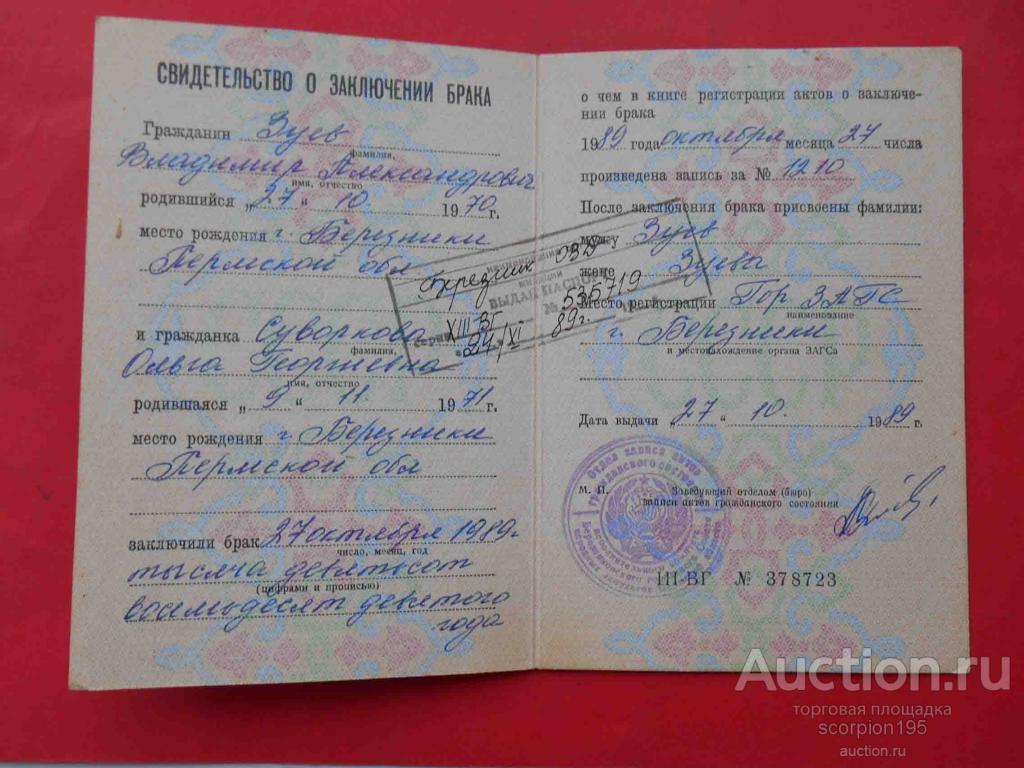 СВИДЕТЕЛЬСТВО О ЗАКЛЮЧЕНИИ БРАКА
Гражданин Зуев
фамилия,
Владимир Александрович
имя, отчество
родившийся „27“ 10. 1970 г.
место рождения г. Березники
Пермской обл
и гражданка Суворкова
фамилия,
Ольга Георгиевна
имя, отчество
родившаяся „9“ 11. 1971 г.
место рождения г. Березники
Пермской обл
заключили брак 27 октября 1989г
число, месяц, год
тысяча девятьсот
(цифрами и прописью)
восемьдесят девятого
года
о чем в книге регистрации актов о заключе-
нии брака
1989 года октября месяца 27 числа
произведена запись за № 1210
После заключения брака присвоены фамилии:
мужу Зуев
жене Зуева
Место регистрации Гор ЗАГС
наименование
г. Березники
и местонахождение органа ЗАГСа
Дата выдачи „27“ 10. 1989 г.
М. П. Заведующий отделом (бюро)
записи актов гражданского состояния
III-ВГ № 378723
ОВД
ВЫДАН ПАСПОРТ
XIII ВГ № 535719
24/XI 89г.
Отдел записи актов
гражданского состояния
Auction.ru
торговая площадка
scorpion195
auction.ru